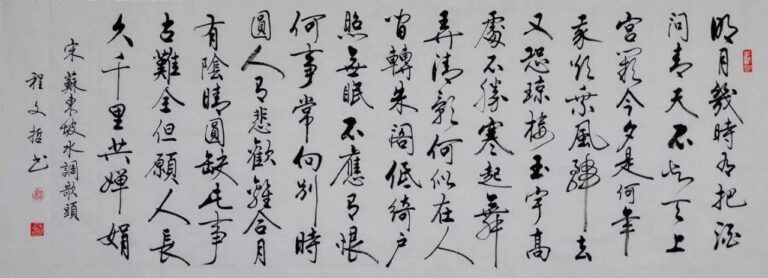 明月幾時有把酒
問青天不知天上
宮闕今夕是何年
我欲乘風歸去
又恐瓊樓玉宇高
處不勝寒起舞
弄清影何似在人
間轉朱閣低綺户
照無眠不應有恨
何事常向别時
圓人有悲歡離合月
有陰晴圓缺此事
古難全但願人長
久千里共嬋娟
宋蘇東坡水調歌頭
程文哲书